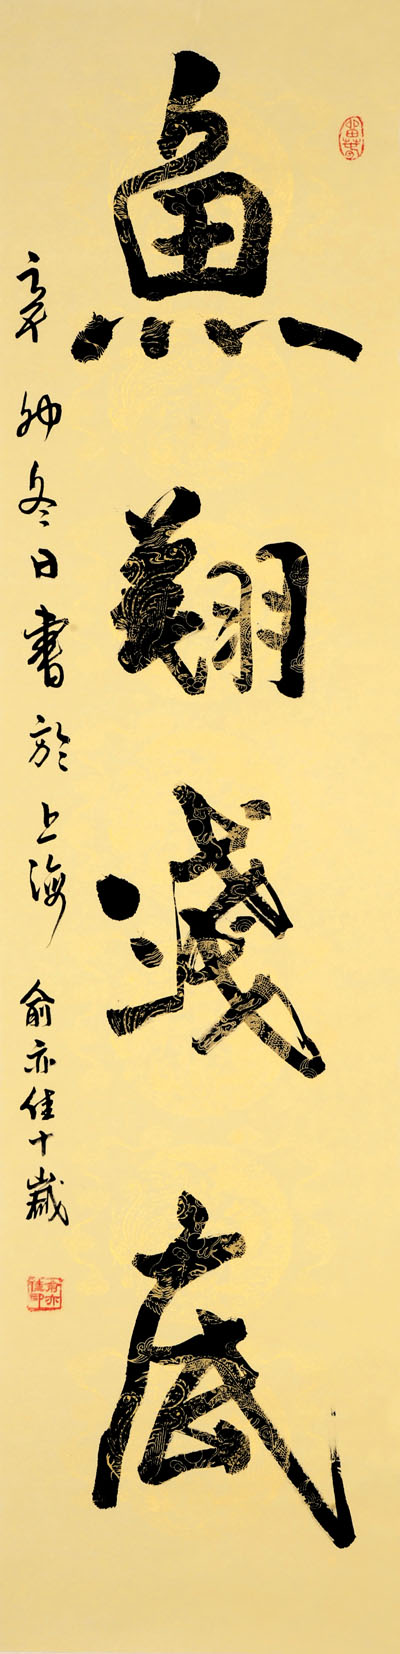 魚翔淺底
辛卯冬日書於上海 俞亦佳十歲
俞亦佳印